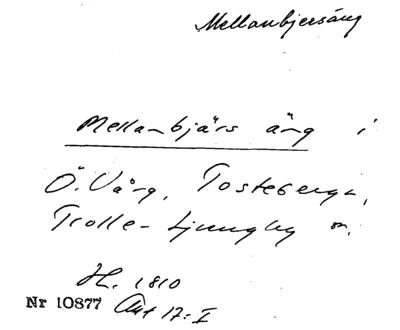 Mellanbjersäng
Mellanbjärs äng i
Ö. Vång, Tosteberga,
Trolle-Ljungby sn.
H. 1810
Nr 10877 Akt 17: I